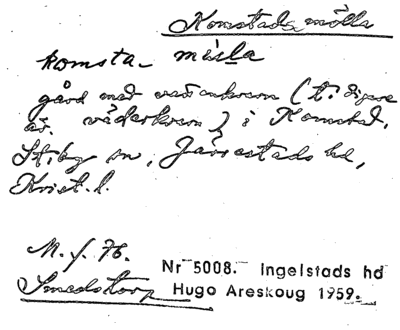 Komstads mölla
komsta- mẹ̈lla
gård med vattenkvarn (tidigare
äv. väderkvarn) i Komstad,
St:by sn, Järrestads hd,
Krist. l.
M. f. 76.
Smedstorp
Nr 5008. Ingelstads hd
Hugo Areskoug 1959.